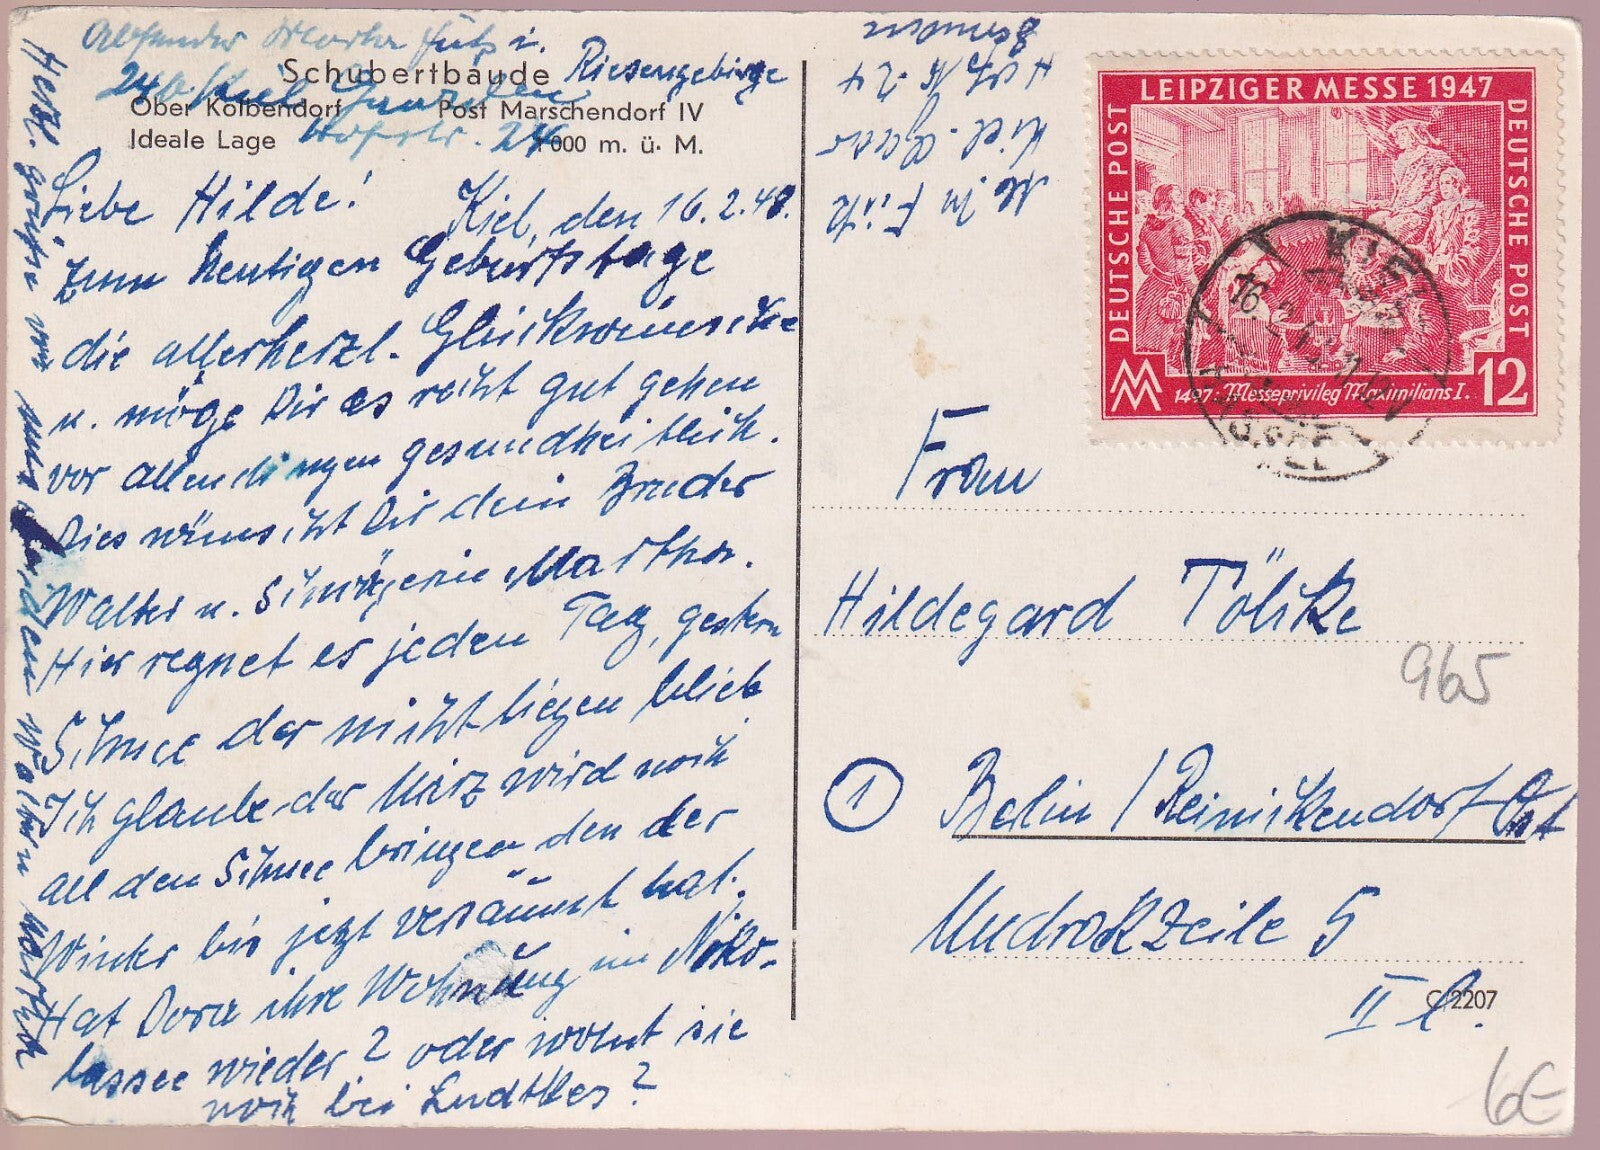 Absender Martha Fütz i.
24b Kiel Gaarden
Hofstr. 24
Schubertbaude Riesengebirge
Ober Kolbendorf Post Marschendorf IV
Ideale Lage 1000 m. ü. M.
Liebe Hilde! Kiel, den 16.2.48.
Zum heutigen Geburtstage
die allerherzl. Glückwünsche
u. möge Dir es recht gut gehen
vor allendingen gesundheitlich.
Dies wünscht Dir dein Bruder
Walter u. Schwägerin Martha.
Hier regnet es jeden Tag, gestern
Schnee der nicht liegen blieb
Ich glaube der März wird noch
all den Schnee bringen den der
Winter bis jetzt versäumt hat.
Hat Dora ihre Wohnung in Niko-
lassee wieder? oder wohnt sie
noch bei Ludtkes?
Herzl. Grüße von uns beiden Walter u. Martha
Abs. M. Fütz
Kiel-
Hofstr. 24
LEIPZIGER MESSE 1947
DEUTSCHE POST
DEUTSCHE POST
1497: Messeprivileg Maximilians I.
12
KIEL
16.2.48
Frau
Hildegard Tölke
965
1 Berlin / Reinickendorf-Ost
Mudrakzeile 5
II l.
C 2207
6€